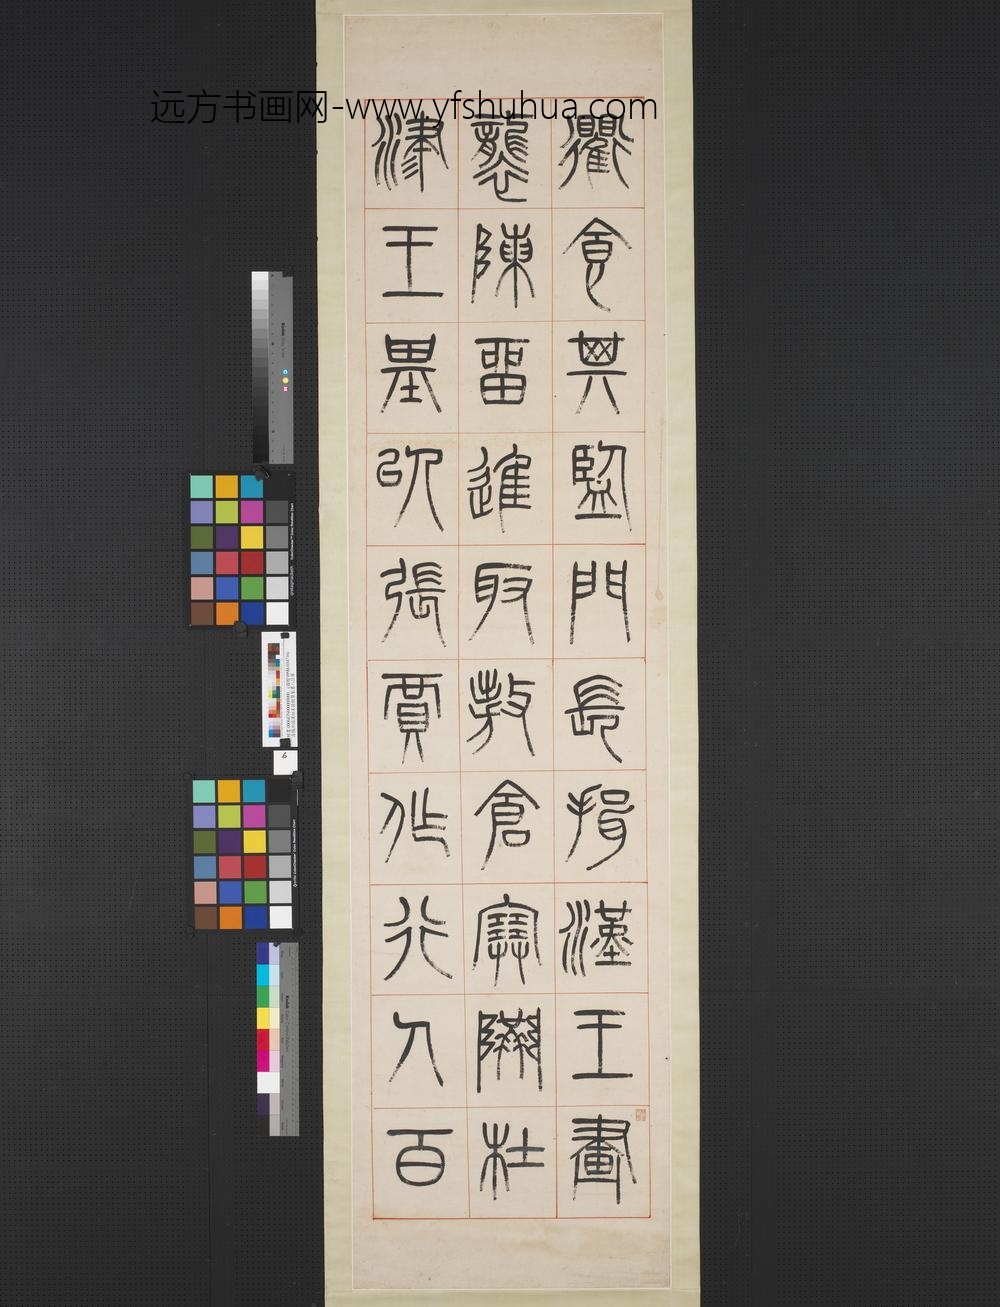 远方书画网-www.yfshuhua.com
衢食其監門長揖漢王畫
襲陳留進取敖倉塞隘杜
津王基以張賈作行人百